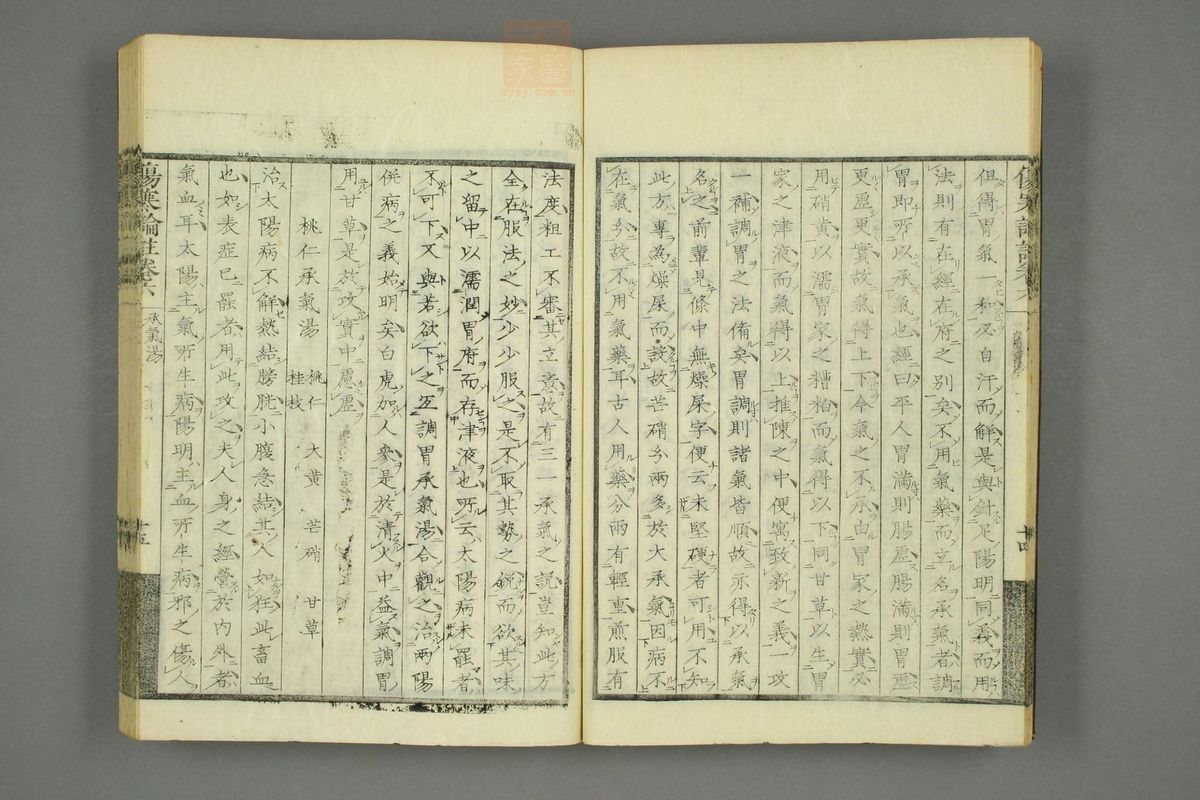 但得胃氣一和必自汗而解是與針足陽明同義而用
法則有在經在府之別矣不用氣藥而立名承氣者調
胃即所以承氣也經曰平人胃滿則腸虛腸滿則胃虛
更虛更實故氣得上下今氣之不承由胃家之熱實必
用硝黃以濡胃家之糟粕而氣得以下同甘草以生胃
家之津液而氣得以上推陳之中便寓致新之義一攻
一補調胃之法備矣胃調則諸氣皆順故亦得以承氣
名之前輩見條中無燥屎字便云未堅硬者可用不知
此方專為燥屎而設故芒硝分兩多於大承氣因病不
在氣分故不用氣藥耳古人用藥分兩有輕重煎服有
十四
法度粗工不審其立意故有三一承氣之說豈知此方
全在服法之妙少少服之是不取其勢之銳而欲其味
之留中以濡潤胃府而存津液也所云太陽病未罷者
不可下又與若欲下之宜調胃承氣湯合觀之治兩陽
併病之義始明矣白虎加人參是於清火中益氣調胃
用甘草是於攻實中慮虛
桃仁承氣湯
桃仁 大黃 芒硝 甘草
桂枝
治太陽病不解熱結膀胱小腹急結其人如狂此畜血
也如表症已罷者用此攻之夫人身之經營於內外者
氣血耳太陽主氣所生病陽明主血所生病邪之傷人
傷寒論註卷六 承氣湯 十五
zysj.com.cn